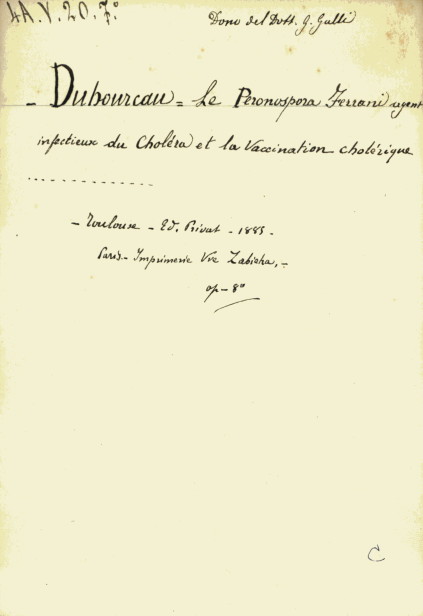 4A.V.20.7º
Dono del Dott. G. Galli
- Duhourcau = Le Peronospora Ferrani agent
infectieux du Choléra et la Vaccination cholérique
..............
- Toulouse - Ed. Privat - 1885 -
Paris - Imprimerie Vve Zabieha, -
op - 8º
C